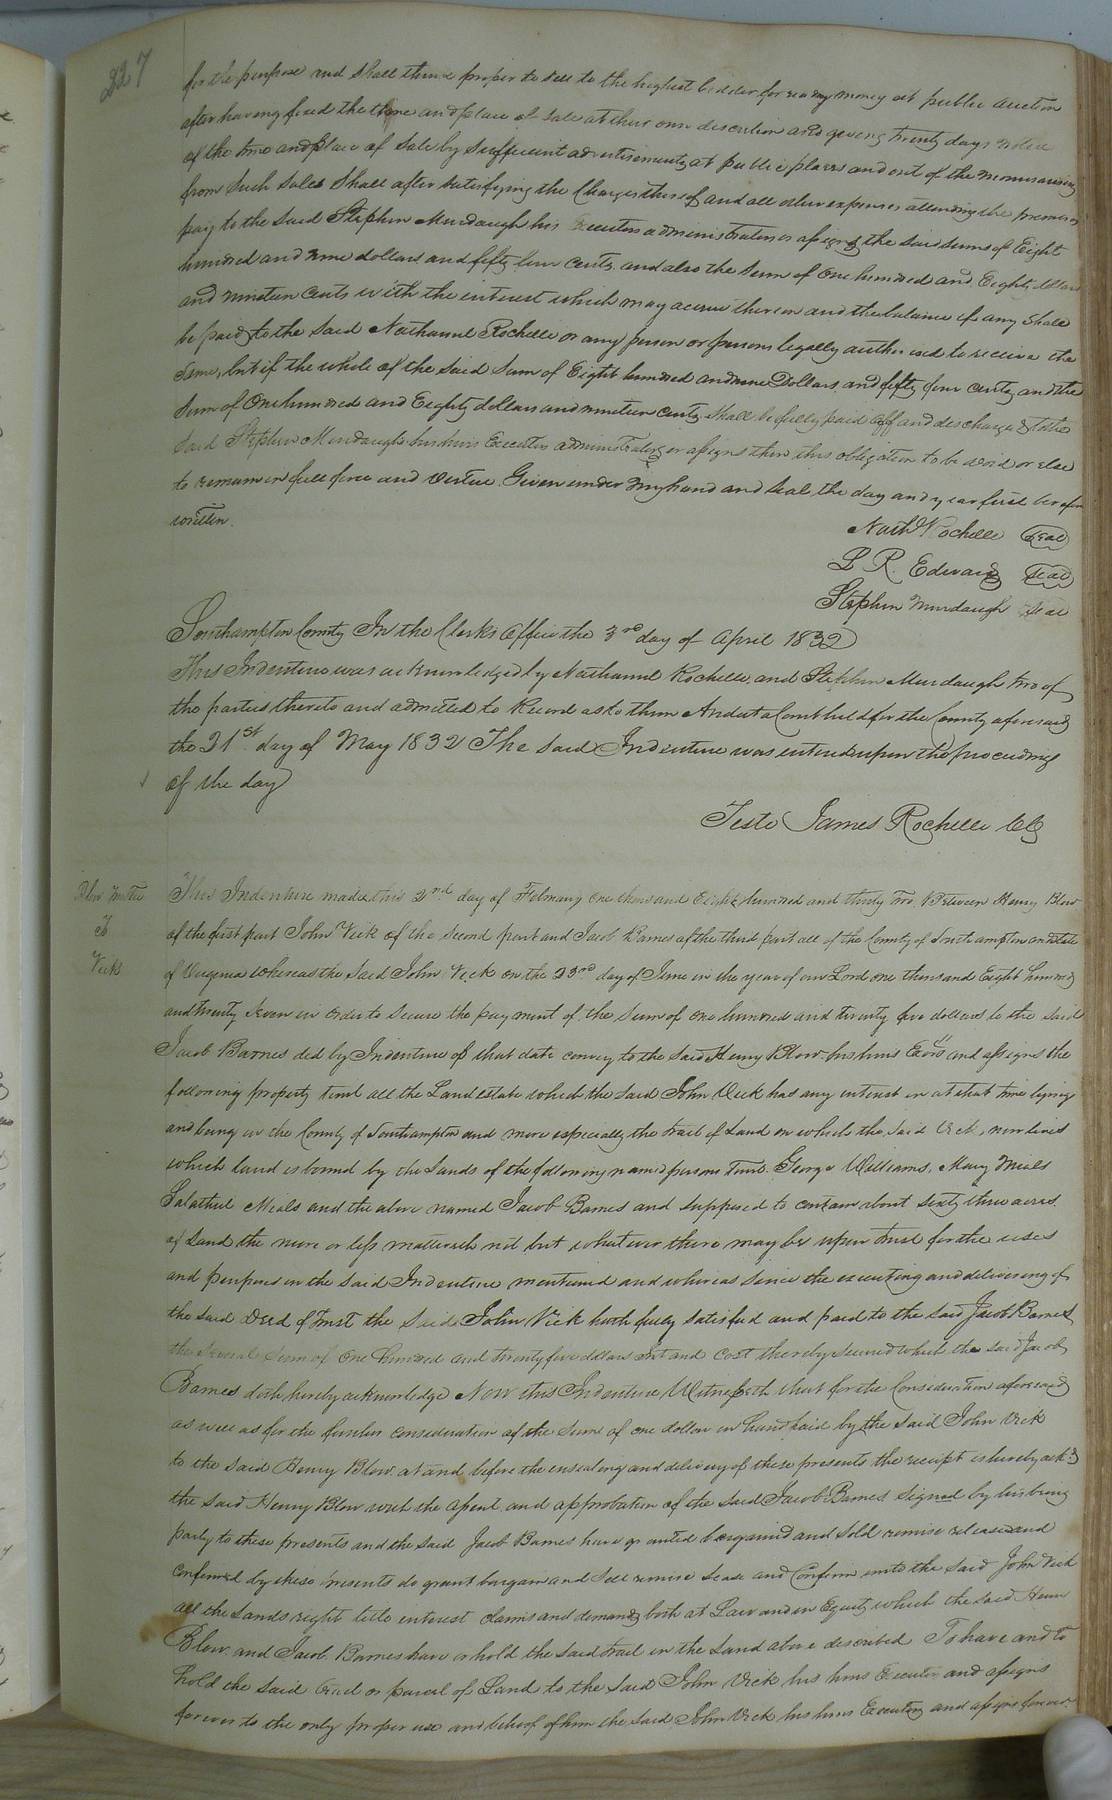 227
for the purpose and shall think proper to sell to the highest bidder for ready money at public auction
after having fixed the time and place of sale at their own discretion and giving twenty days notice
of the time and place of sale by sufficient advertisements at public places and out of the monies arising
from such sales shall after satisfying the Charges thereof and all other expenses attending the premises
pay to the said Stephen Murdaugh his Executors administrators or assigns the said sums of Eight
hundred and nine dollars and fifty four cents and also the sum of one hundred and Eighty dollars
and nineteen cents with the interest which may accrue thereon and the balance if any shall
be paid to the said Nathaniel Rochelle or any person or persons legally authorised to receive the
same, but if the whole of the said sum of Eight hundred and nine Dollars and fifty four cents and the
sum of One hundred and Eighty dollars and nineteen cents shall be fully paid off and discharged to the
said Stephen Murdaugh his heirs Executors administrators or assigns then this obligation to be void or else
to remain in full force and virtue. Given under my hand and seal the day and year first before
written.
Nath Rochelle Seal
L R. Edwards Seal
Stephen Murdaugh Seal
Southampton County In the Clerks Office the 3rd day of April 1832
This Indenture was acknowledged by Nathaniel Rochelle and Stephen Murdaugh two of
the parties thereto and admitted to Record as to them And at a Court held for the County aforesaid
the 21st day of May 1832 The said Indenture was entered upon the proceedings
of the day
Teste James Rochelle CC
Blow Trustee
To
Vick
This Indenture made this 2nd day of February one thousand Eight hundred and thirty two Between Henry Blow
of the first part John Vick of the second part and Jacob Barnes of the third part all of the County of Southampton and state
of Virginia Whereas the said John Vick on the 23rd day of June in the year of our Lord one thousand Eight hundred
and twenty seven in order to secure the payment of the sum of one hundred and twenty five dollars to the said
Jacob Barnes did by Indenture of that date convey to the said Henry Blow his heirs Exors and assigns the
following property to wit all the Land estate which the said John Vick has any interest in at that time lying
and being in the County of Southampton and more especially the tract of Land on which the said Vick now lives
which land is bound by the Lands of the following named persons to wit. George Williams, Mary Meals
Salathiel Meals and the above named Jacob Barnes and supposed to contain about sixty three acres
of Land the more or less mattereth not but whatever there may be upon trust for the uses
and purposes in the said Indenture mentioned and whereas since the executing and delivering of
the said Deed of Trust the said John Vick hath fully satisfied and paid to the said Jacob Barnes
the several sum of one hundred and twenty five dollars Int and Cost thereby secured which the said Jacob
Barnes doth hereby acknowledge Now this Indenture Witnesseth that for the Consideration aforesaid
as well as for the further consideration of the sum of one dollar in hand paid by the said John Vick
to the said Henry Blow at and before the ensealing and delivery of these presents the receipt is hereby ackd
the said Henry Blow with the assent and approbation of the said Jacob Barnes signed by his being
party to these presents and the said Jacob Barnes have granted bargained and sold remise released and
confirmed by these presents do grant bargain and sell remise lease and Confirm unto the said John Vick
all the Lands right title interest claims and demands both at Law and in Equity which the said Henry
Blow and Jacob Barnes have or hold the said tract in the Land above described To have and to
hold the said tract or parcel of Land to the said John Vick his heirs Executors and assigns
forever to the only proper use and behoof of him the said John Vick his heirs Executors and assigns forever